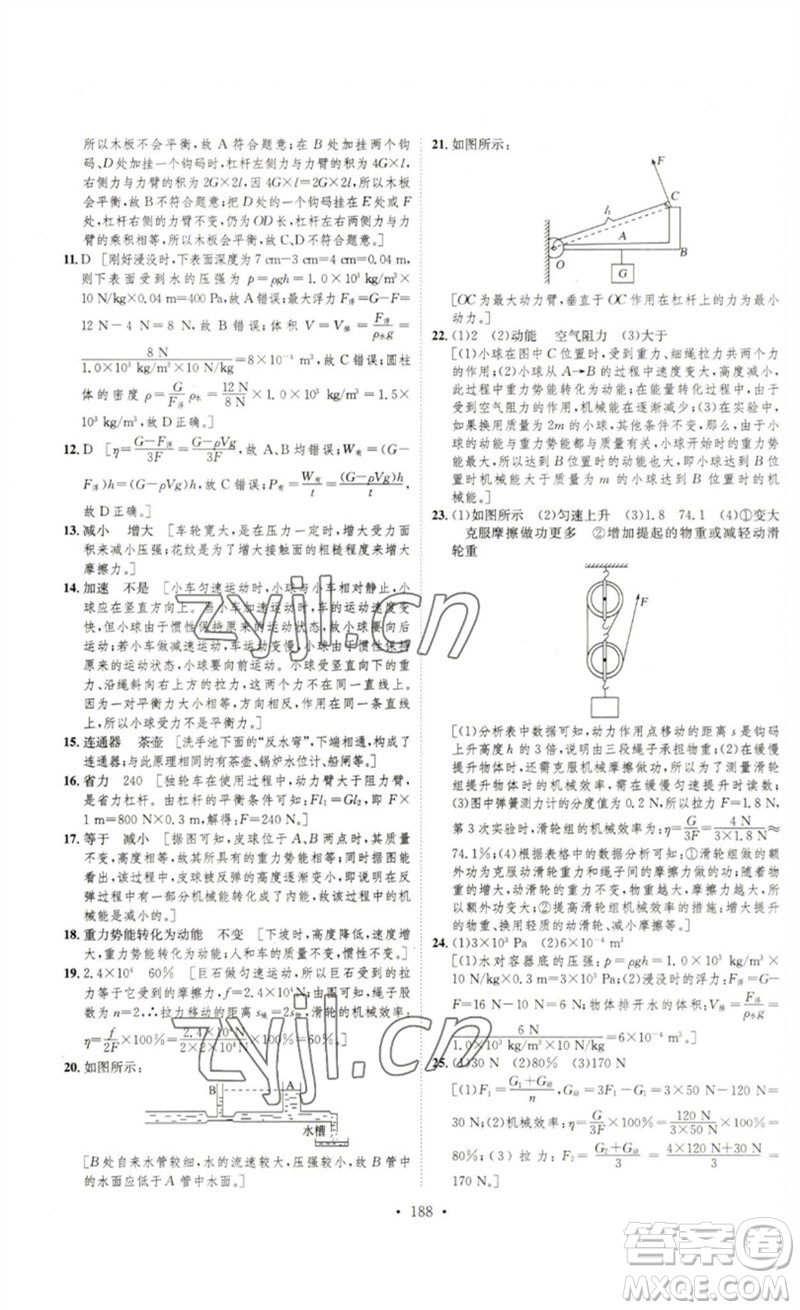 所以木板不会平衡,故 A 符合题意;在 B 处加挂两个钩
码、D 处加挂一个钩码时,杠杆左侧力与力臂为 4G×l,
右侧力与力臂的乘积为 2G×2l,因 4G×l=2G×2l,故木板
会平衡,故 B 不符合题意;把 D 处的一个钩码挂在 E 处或 F
处,杠杆右侧的力不变、力臂不变,仍为 OD 长,杠杆两边力与
力臂的乘积相等,所以木板会平衡,故 C、D 不符合题意。]
11. D [刚好浸没时,下表面深度为 7 cm-3 cm=4 cm=0.04 m,
则下表面受到水的压强 p=ρgh=1.0×10³ kg/m³×
10 N/kg×0.04 m=400 Pa,故 A 错误;最大浮力 F浮=G-F=
12 N-4 N=8 N,故 B 错误;体积 V=V排=F浮/ρ水g=
8 N/1.0×10³ kg/m³×10 N/kg=8×10⁻⁴ m³,故 C 错误;圆柱
体的密度 ρ=G/F浮 ρ水=12 N/8 N×1.0×10³ kg/m³=1.5×
10³ kg/m³,故 D 正确。]
12. D [η=G-F浮/3F=G-ρVg/3F,故 A、B 均错误;W有=(G-
F浮)h=(G-ρVg)h,故 C 错误;P有=W有/t=(G-ρVg)h/t,
故 D 正确。]
13. 减小 增大 [车轮宽大,是在压力一定时,增大受力面
积来减小压强;花纹是为了增大接触面的粗糙程度来增大
摩擦力。]
14. 加速 不是 [小车匀速运动时,小球与小车相对静止,小
球应在竖直方向上。当小车加速运动时,小车的速度变
快,但小球由于惯性保持原来的运动状态,故小球要向后
运动;若小车做减速运动,小车速度变慢,小球由于惯性保持
原来的运动状态,小球要向前运动。小球受到竖直向下的重
力、沿绳斜向右上方的拉力,这两个力不在同一直线上。
因为一对平衡力大小相等,方向相反,作用在同一条直线
上,所以小球受力不是平衡力。]
15. 连通器 茶壶 [洗手池下面的“反水弯”,下端是相通的构成了
连通器;与反水弯原理相同的有茶壶、锅炉水位计、船闸等。]
16. 省力 240 [独轮车在使用过程中,动力臂大于阻力臂,
是省力杠杆。由杠杆的平衡条件可知:Fl₁=Gl₂,即 F×
1 m=800 N×0.3 m,解得:F=240 N。]
17. 等于 减小 [据图可知,皮球位于 A、B 两点时,其质量
不变、高度不变,故重力势能不变;因皮球在运动的过程
中,反弹的高度逐渐降低,说明皮球被反弹时机械能在反
弹过程中有一部分机械能转化成了内能,故该过程中的机
械能是减小的。]
18. 重力势能转化为动能 不变 [下坡时,高度降低,速度增大,
重力势能转化为动能;人和车的质量不变,惯性不变。]
19. 2.4×10⁴ 60% [巨石做匀速运动时,巨石受到的拉
力等于它受到的摩擦力,f=2.4×10⁴ N;如图可知,绳子股数
为 n=2,∴拉力移动的距离 s绳=2s物,滑轮的机械效率:
η=f/2F×100%=2.4×10⁴ N/2×2×10⁴ N×100%=60%。]
20. 如图所示:
B A
水槽
[B 处自来水管较细,水的流速较大,压强较小,故 B 管中
的水面应低于 A 管中水面。]
21. 如图所示:
F
C
l₁
A
O
B
G
[OC 为最大动力臂,垂直于 OC 作用在杠杆上的力为最小
动力。]
22. (1)2 (2)动能 空气阻力 (3)大于
[(1)小球在图中 C 位置时,受到重力、细绳拉力共两个力
的作用;(2)小球从 A→B 的过程中速度变大,高度减小,
此过程中重力势能转化为动能;在能量转化过程中,由于
受到空气阻力的作用,机械能在逐渐减少。(3)在实验中,
如果用质量为 2m 的小球,其他条件不变,由于影响小球
的动能与重力势能都与质量有关,小球从 A→B 的过程中
重力势能转化为动能,所以到达 B 位置时的动能也大,即
到达 B 位置时机械能大于质量为 m 的到达 B 位置时的机
械能。]
23. (1)如图所示 (2)匀速上升 (3)1.8 74.1 (4)①变大
克服摩擦做功更多 ②增加提起的物重或减轻动滑
轮重
F
[(1)分析表中数据可知,动力作用点移动的距离 s 是钩码
上升高度 h 的 3 倍,说明由三段绳子承担物重;(2)在缓慢
提升物体时,还需克服机械间的摩擦,所以为了测量滑轮
组提升物体时的机械效率,应缓慢匀速提升时读数;
(3)图中弹簧测力计的分度值为 0.2 N,所以拉力 F=1.8 N,
第 3 次实验时,滑轮组的机械效率为:η=G/3F=4 N/3×1.8 N≈
74.1%;(4)根据表格中的数据分析可知:①滑轮组的额外
功为克服动滑轮重力和绳子间的摩擦力做的功;随着物重
增加,动滑轮的重力是不变的,但摩擦力却是不断增大的,
所以额外功变大;②提高机械效率的措施:增大提升的物
重、换用轻质的动滑轮、减小摩擦等。]
24. (1)3×10³ Pa (2)6×10⁻⁴ m³
[(1)水对容器底的压强:p=ρgh=1.0×10³ kg/m³×
10 N/kg×0.3 m=3×10³ Pa;(2)浸没时的浮力:F浮=G
-F=16 N-10 N=6 N;物体排开水的体积:V排=F浮/ρ水g=
6 N/1.0×10³ kg/m³×10 N/kg=6×10⁻⁴ m³。]
25. (1)30 N (2)80% (3)170 N
[(1)F₁=G₁+G动/n,G动=3F₁-G₁=3×50 N-120 N=
30 N;(2)机械效率:η=G/3F×100%=120 N/3×50 N×100%=
80%;(3)拉力:F₂=G₂+G动/3=4×120 N+30 N/3=
170 N。]
• 188 •
zyjl.cn
zyjl.cn
答案圈
MXQE.COM